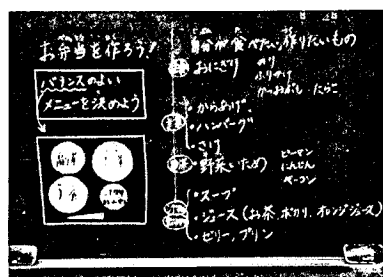 お弁当を作ろう!
バランスのよい
メニューを決めよう
自分が食べたい、作りたいもの
おにぎり
のり
ふりかけ
かつおぶし・たらこ
・からあげ
・ハンバーグ
・さけ
・野菜いため
ピーマン
にんじん
ベーコン
・スープ
・ジュース(お茶、ポカリ、オレンジジュース)
・ゼリー、プリン